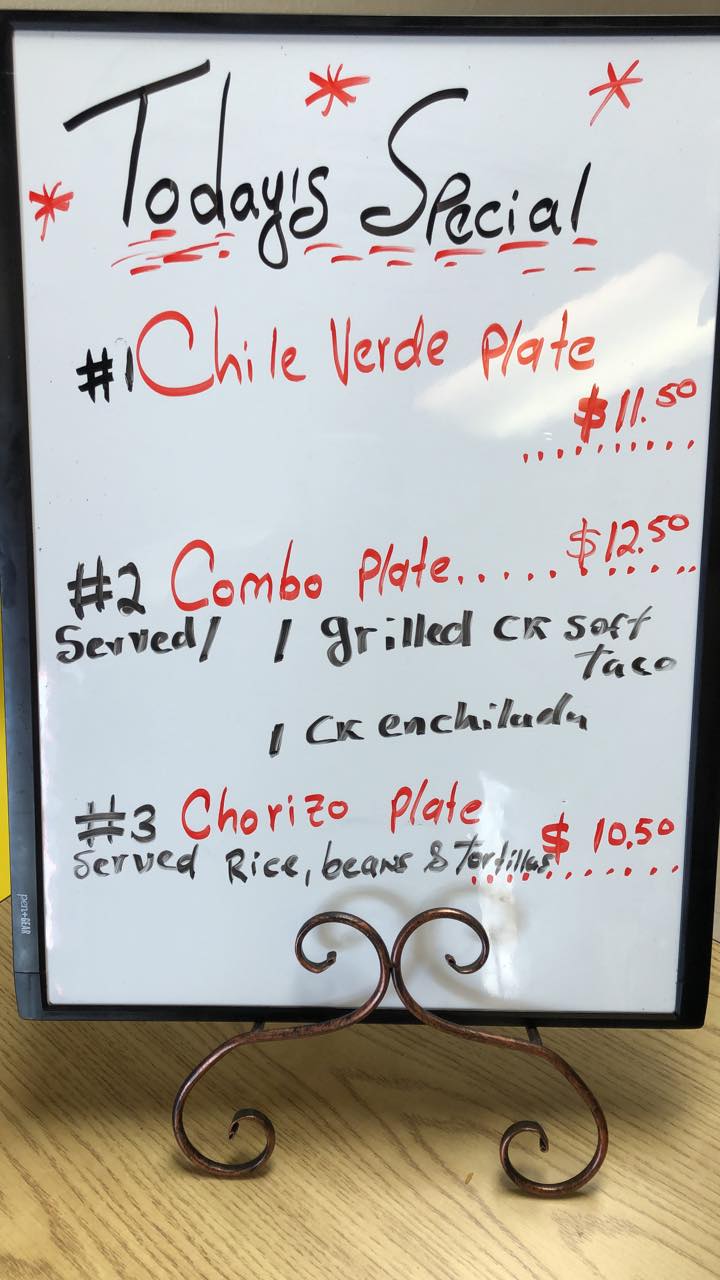 Today's Special
#1 Chile Verde Plate
$11.50
#2 Combo Plate..... $12.50
Served/ 1 grilled CK soft
Taco
1 CK enchilada
#3 Chorizo Plate
$ 10.50
Served Rice, beans & Tortillas
pen+GEAR